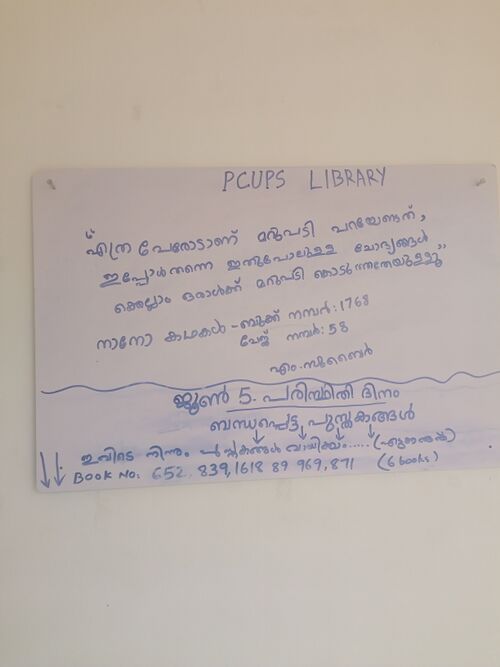 PCUPS LIBRARY
"എത്ര പേരോടാണ് മറുപടി പറയേണ്ടത്,
ഇപ്പോൾ തന്നെ ഇതുപോലുള്ള ചോദ്യങ്ങൾ
ക്കെല്ലാം ഒരാൾക്ക് മറുപടി കൊടുത്തതേയുള്ളൂ"
നാനോ കഥകൾ - ബുക്ക് നമ്പർ: 1768
പേജ് നമ്പർ: 58
എം. സുബൈർ
ജൂൺ 5. പരിസ്ഥിതി ദിനം
ബന്ധപ്പെട്ട പുസ്തകങ്ങൾ
ഇവിടെ നിന്നും പുസ്തകങ്ങൾ വായിക്കാം.....
BOOK NO: 652, 839, 1618 89 969, 871 (6 books)